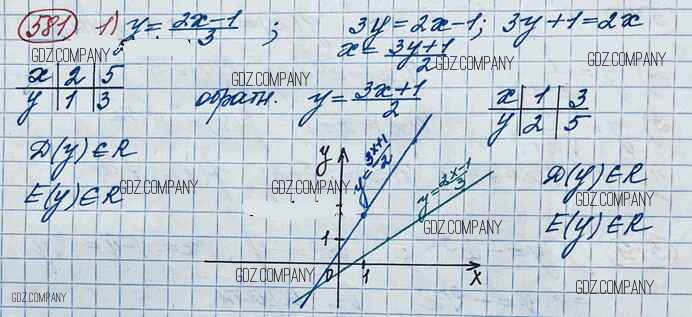 581 1) y = 2x-1/3 ; 3y = 2x-1; 3y+1 = 2x
x = 3y+1/2
GDZ.COMPANY GDZ.COMPANY GDZ.COMPANY
x | 2 | 5
y | 1 | 3
обратн. y = 3x+1/2
x | 1 | 3
y | 2 | 5
GDZ.COMPANY GDZ.COMPANY GDZ.COMPANY
D(y) ∈ R
E(y) ∈ R
GDZ.COMPANY GDZ.COMPANY GDZ.COMPANY
y
y = 3x+1/2
y = 2x-1/3
1
0 1 x
D(y) ∈ R
E(y) ∈ R
GDZ.COMPANY GDZ.COMPANY
GDZ.COMPANY GDZ.COMPANY GDZ.COMPANY